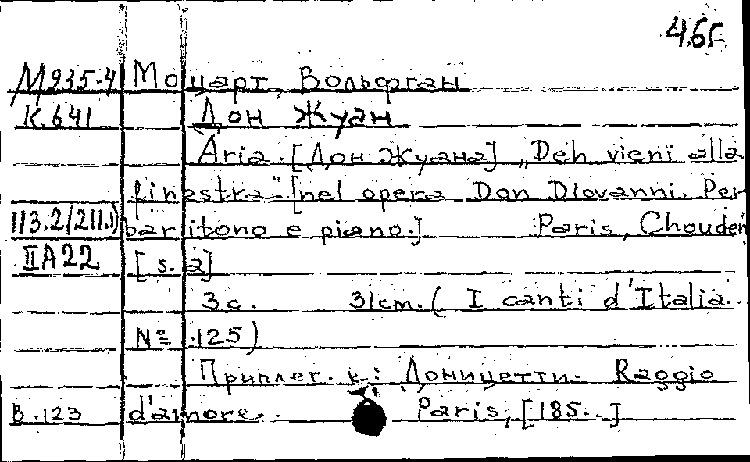 46г
М935-4 Моцарт, Вольфган
К.641 Дон Жуан
Aria [Дон Жуана] „Deh vieni alla
finestra" [nel opera Don Diovanni. Per
113.2/211.1) baritono e piano.] Paris, Choudens
II A 22 [s. a]
3 с. 31cm. ( I canti d'Italia.
№ 125)
Приплет. к: Доницетти. Raggio
B.123 d'amore. Paris, [185. ]